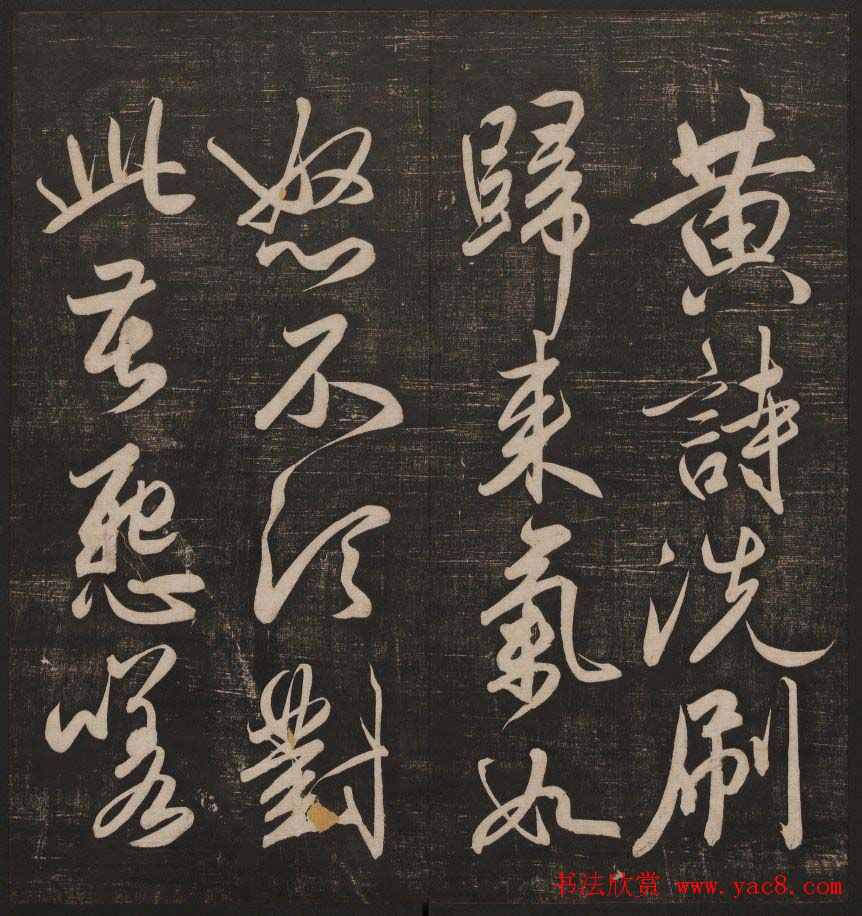 黄詩洗刷
歸来氣如
怒不須對
此
书法欣赏 www.yac8.com